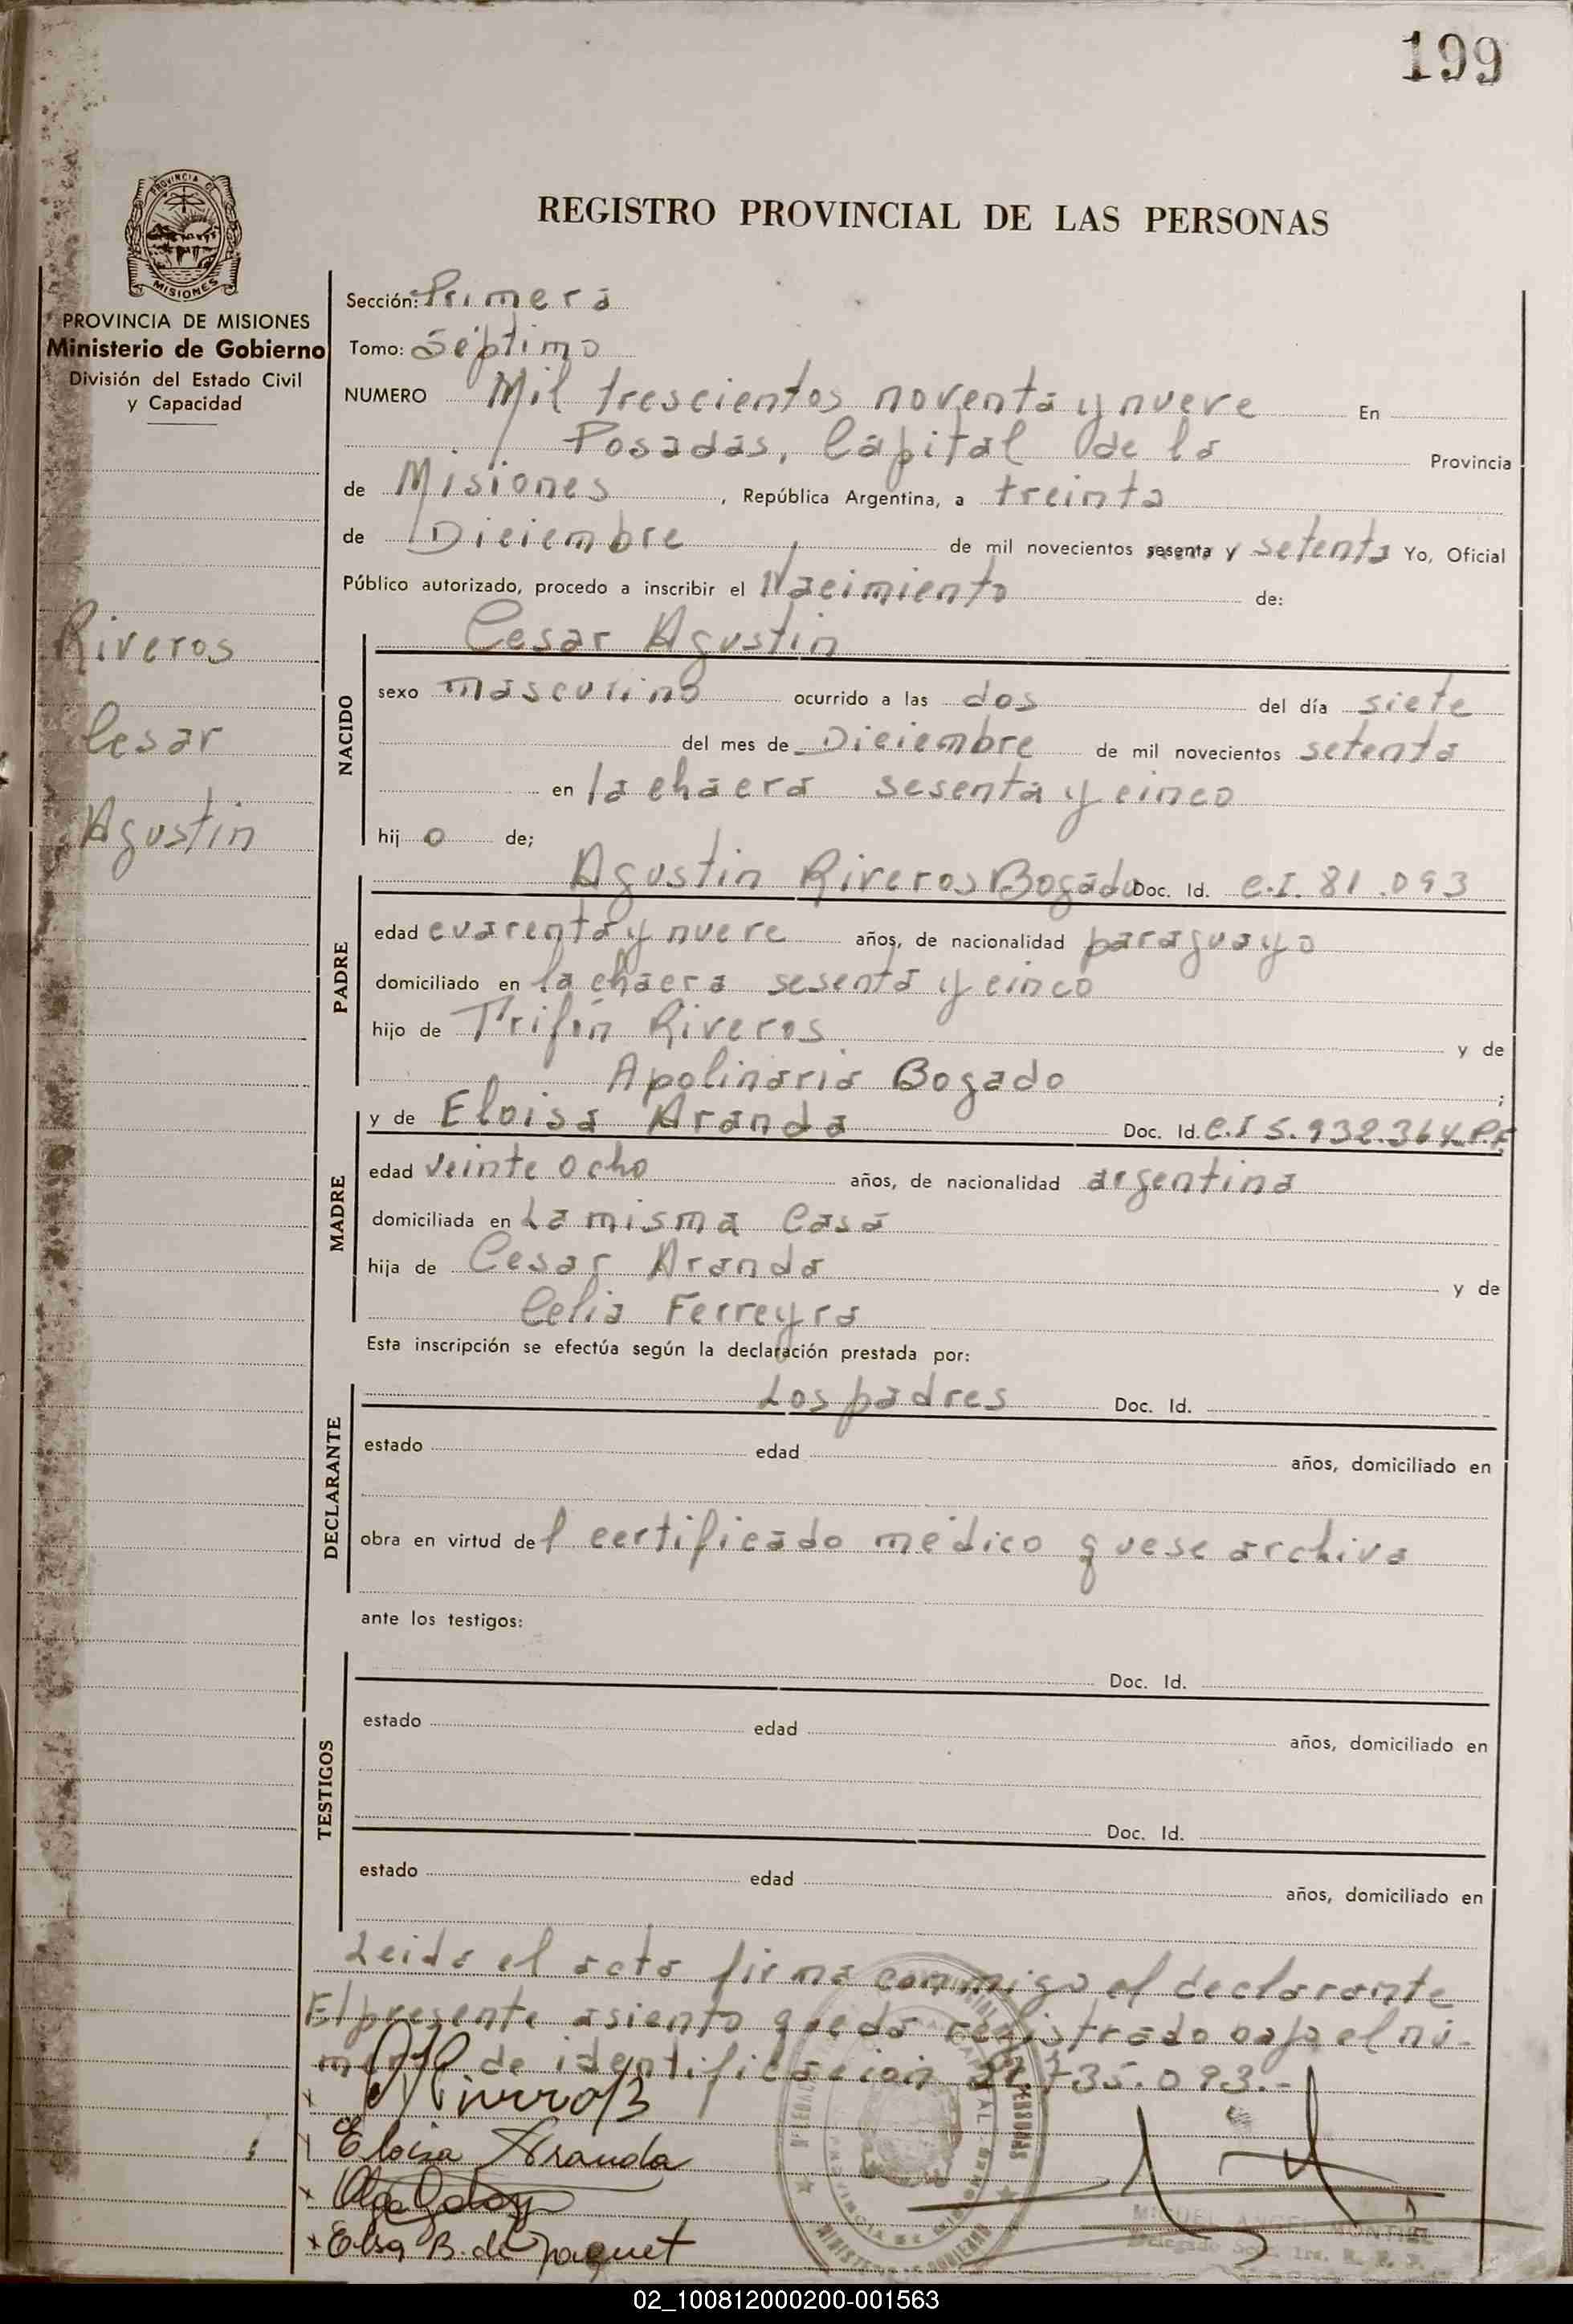 199
PROVINCIA DE
MISIONES
REGISTRO PROVINCIAL DE LAS PERSONAS
PROVINCIA DE MISIONES
Ministerio de Gobierno
División del Estado Civil
y Capacidad
Riveros
Cesar
Agustin
Sección: Primera
Tomo: Séptimo
NUMERO Mil trescientos noventa y nueve En
Posadas, Capital de la Provincia
de Misiones, República Argentina, a treinta
de Diciembre de mil novecientos sesenta y setenta Yo, Oficial
Público autorizado, procedo a inscribir el Nacimiento de:
NACIDO
Cesar Agustin
sexo masculino ocurrido a las dos del día siete
del mes de Diciembre de mil novecientos setenta
en la chacra sesenta y cinco
hij o de;
PADRE
Agustin Riveros Bogado Doc. Id. C.I. 81.093
edad cuarenta y nueve años, de nacionalidad paraguayo
domiciliado en la chacra sesenta y cinco
hijo de Trifón Riveros y de
Apolinaria Bogado ;
MADRE
y de Eloisa Aranda Doc. Id. C.I 5.932.364 P.F
edad veinte ocho años, de nacionalidad argentina
domiciliada en La misma casa
hija de Cesar Aranda y de
Celia Ferreyra
Esta inscripción se efectúa según la declaración prestada por:
DECLARANTE
Los padres Doc. Id.
estado edad años, domiciliado en
obra en virtud del certificado médico que se archiva
ante los testigos:
TESTIGOS
Doc. Id.
estado edad años, domiciliado en
Doc. Id.
estado edad años, domiciliado en
Leida el acta firma conmigo el declarante
El presente asiento queda registrado bajo el nú-
mero de identificacion 21.735.093.-
Eloisa Aranda
Elsa B. de Jaquet
MIGUEL ANGEL MONTIEL
Delegado Secc. 1ra. R. P. P.
02_100812000200-001563